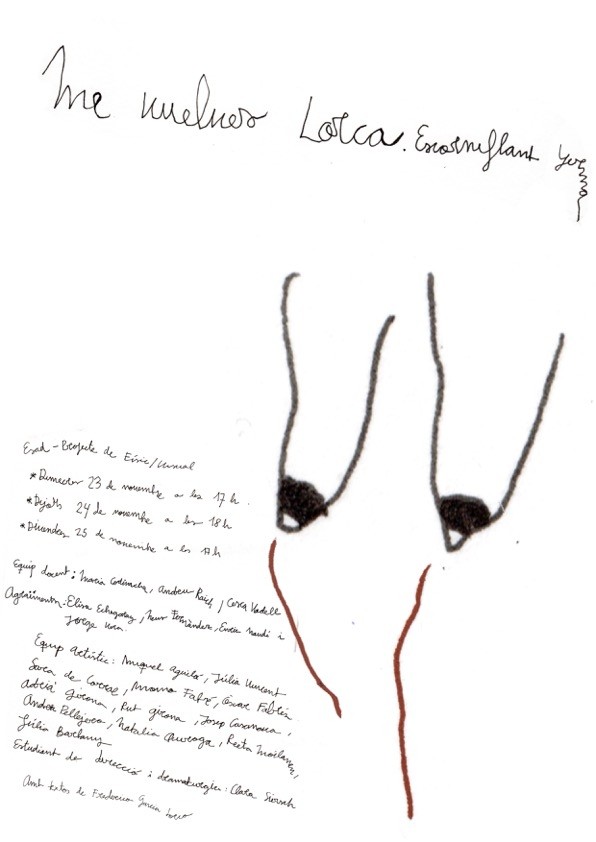 Me vuelves Lorca. Escorniflant Yerma
Esad - Projecte de Físic/Visual
*Dimecres 23 de novembre a les 17 h.
*Dijous 24 de novembre a les 18h
*Divendres 25 de novembre a les 17h
Equip docent: Maria Andreu Raich, Cesca Vadell
Agraïments: Elisa Echegaray, Fernández, Enric i
Jorge
Equip Artístic: Miquel Aguiló, Júlia Vincent
de Corral, Fabré, Òscar Fabrés
Adrià Girona, Rut Girona, Josep Casanova,
Andrea Pellejero, Natalia Reeta
Júlia Barclany
Estudiant de direcció i dramatúrgia: Clara
Amb textos de Federico García Lorca